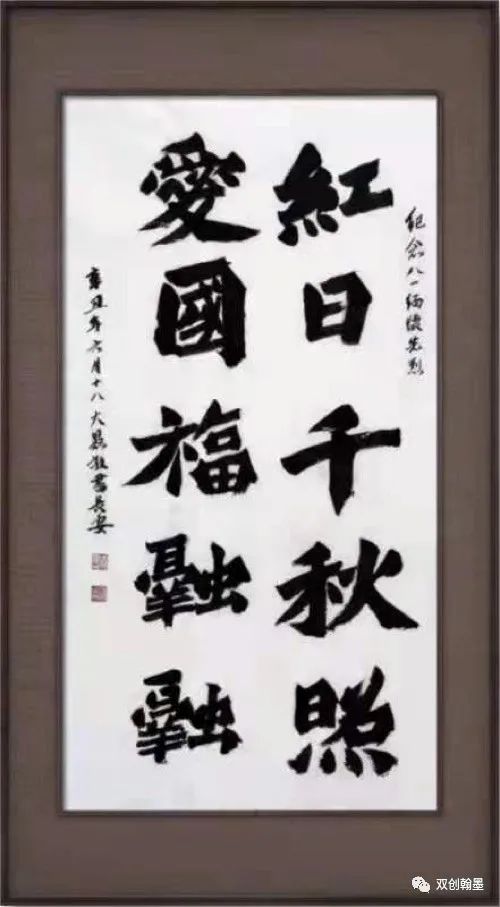 纪念八一缅懷先烈
紅日千秋照
愛國福融融
辛丑年六月十八大敬書長安
双创翰墨